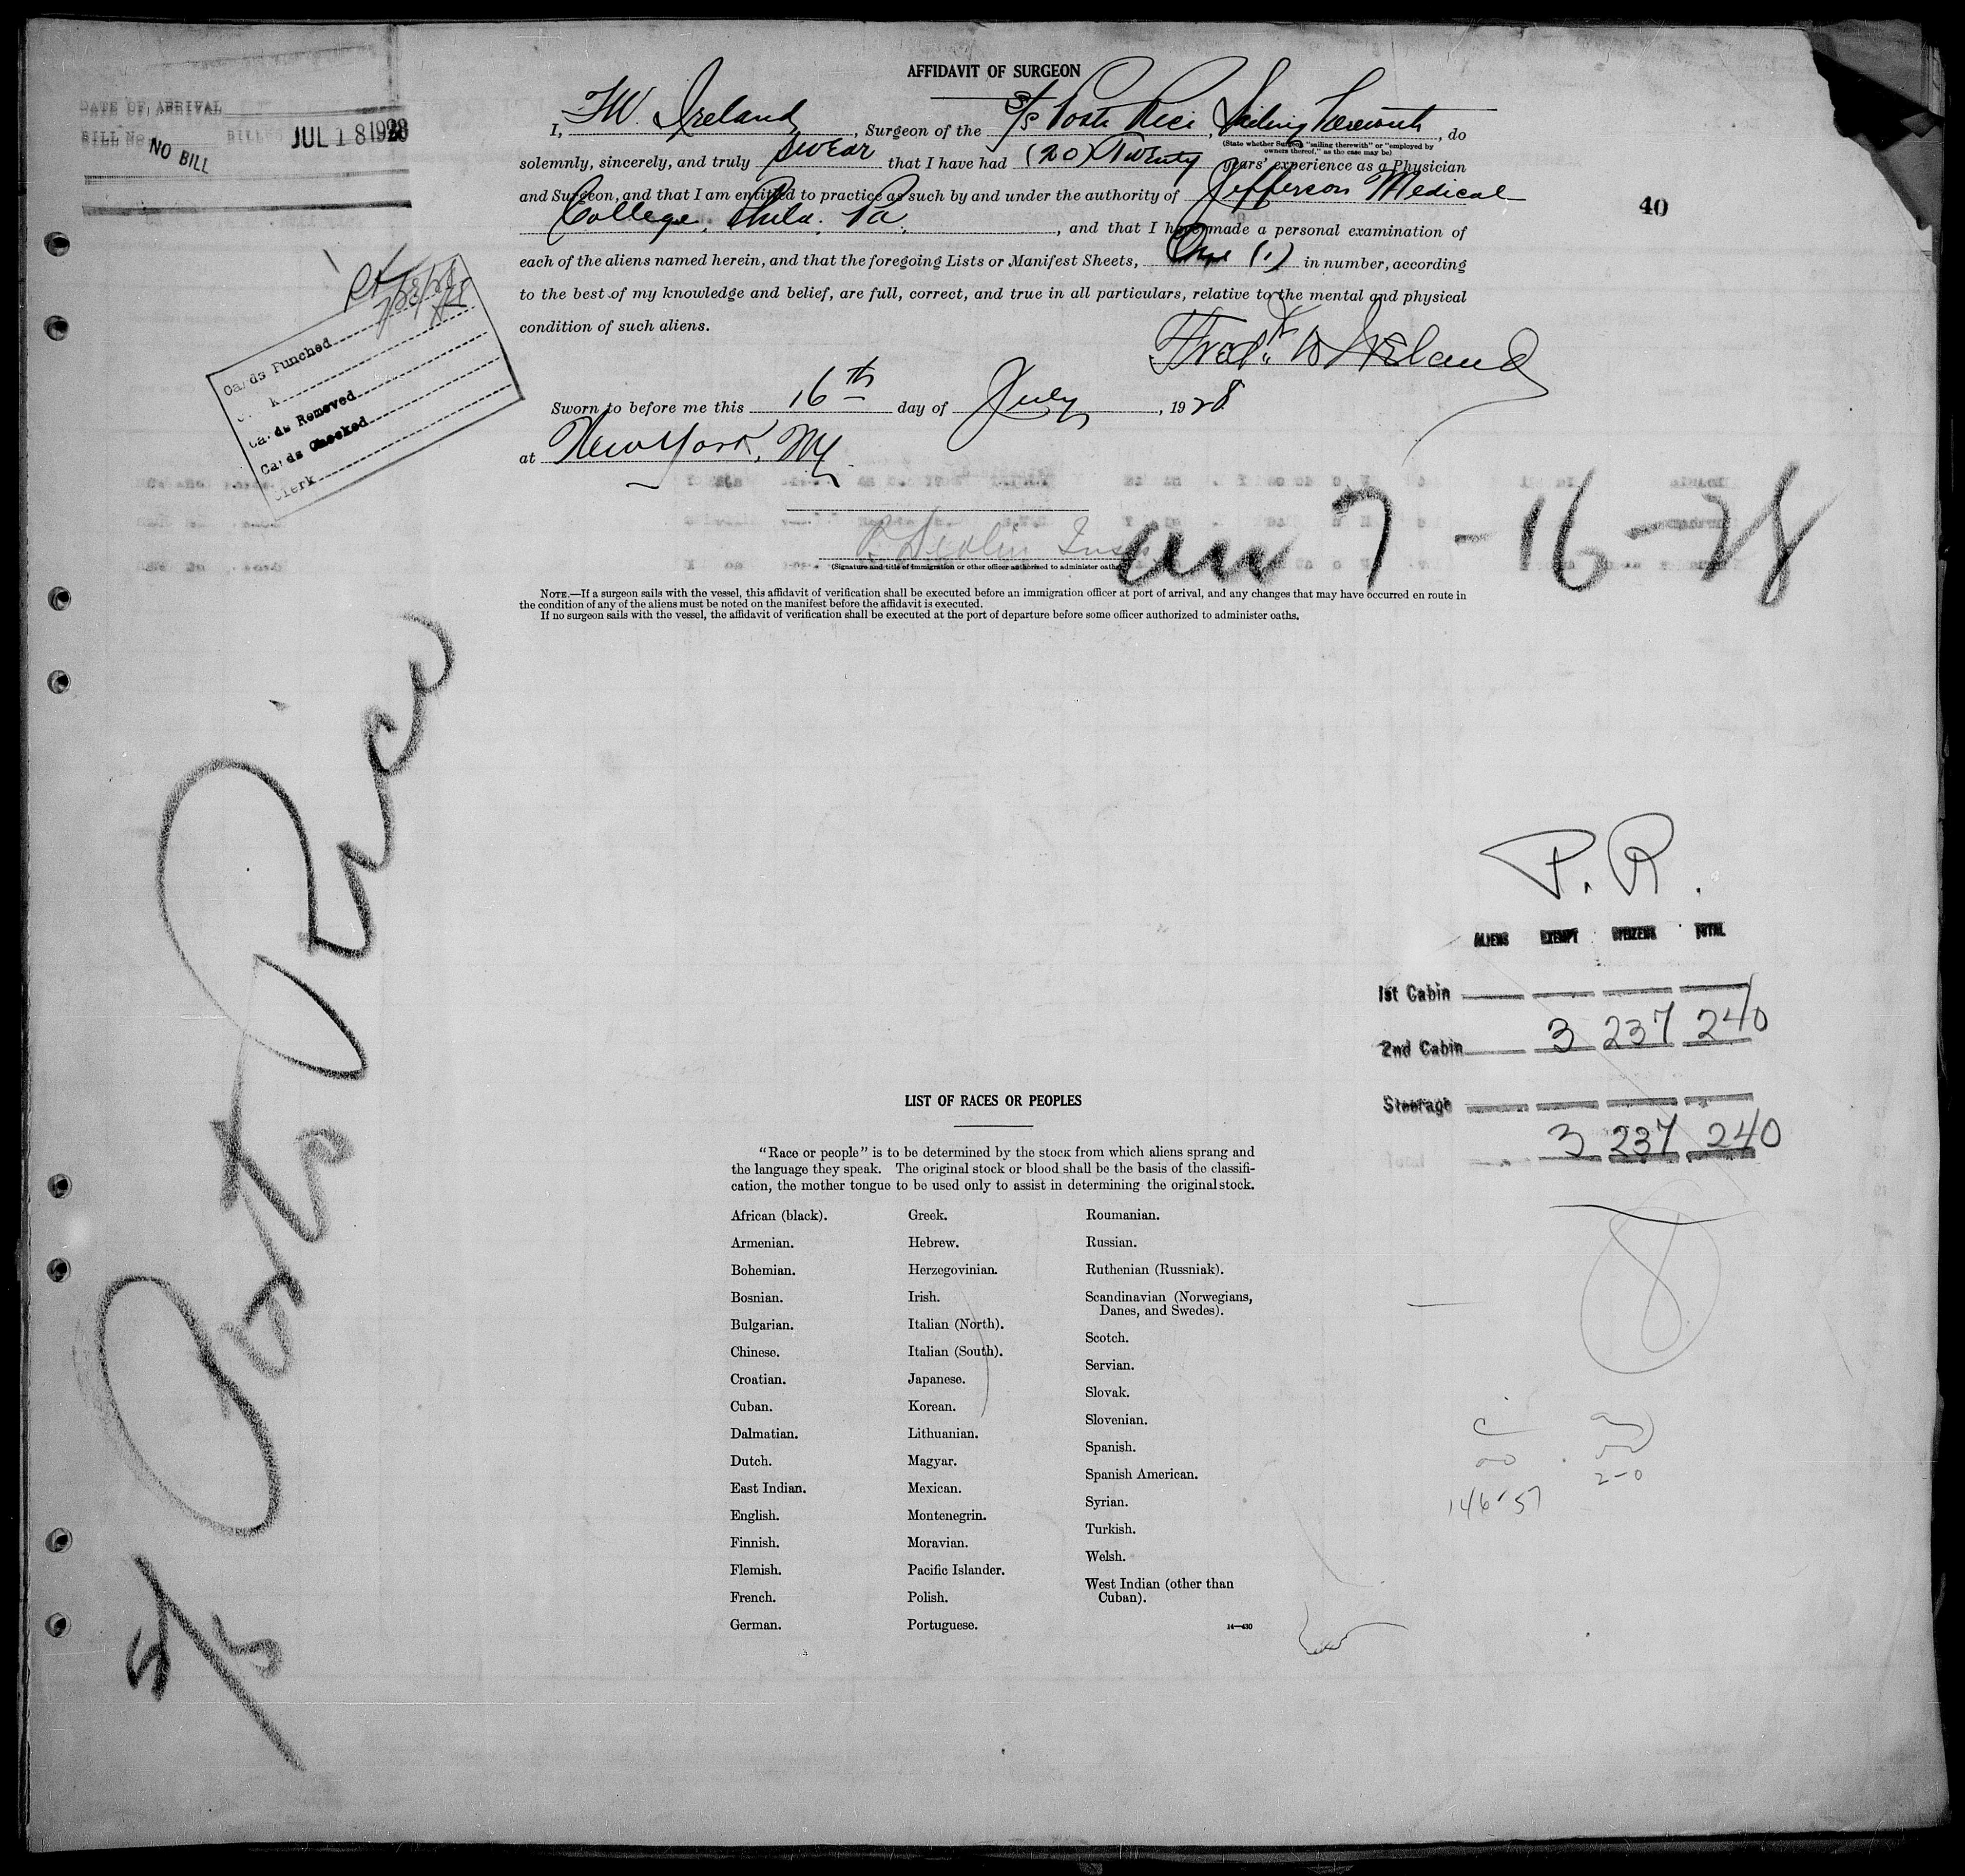 AFFIDAVIT OF SURGEON
DATE OF ARRIVAL
BILL No. BILL
NO BILL
JUL 18 1928
I, F.W. Ireland, Surgeon of the S/S Porto Rico, Sailing Therewith, do
(State whether Surgeon "sailing therewith" or "employed by
owners thereof," as the case may be)
solemnly, sincerely, and truly swear that I have had (20) Twenty years' experience as a Physician
and Surgeon, and that I am entitled to practice as such by and under the authority of Jefferson Medical
College, Phila. Pa., and that I have made a personal examination of
each of the aliens named herein, and that the foregoing Lists or Manifest Sheets, One (1) in number, according
to the best of my knowledge and belief, are full, correct, and true in all particulars, relative to the mental and physical
condition of such aliens.
Fred'k W Ireland
40
Cards Punched
Cards Removed
Cards Checked
Clerk
Sworn to before me this 16th day of July, 1928
at New York, NY
P. Devlin Insp
(Signature and title of immigration or other officer authorized to administer oaths)
arr 7-16-28
NOTE.—If a surgeon sails with the vessel, this affidavit of verification shall be executed before an immigration officer at port of arrival, and any changes that may have occurred en route in
the condition of any of the aliens must be noted on the manifest before the affidavit is executed.
If no surgeon sails with the vessel, the affidavit of verification shall be executed at the port of departure before some officer authorized to administer oaths.
S/S Porto Rico
P. R.
ALIENS EXEMPT CITIZENS TOTAL
1st Cabin
2nd Cabin 3 237 240
Steerage
Total 3 237 240
8
2-0
146-57
LIST OF RACES OR PEOPLES
"Race or people" is to be determined by the stock from which aliens sprang and
the language they speak. The original stock or blood shall be the basis of the classifi-
cation, the mother tongue to be used only to assist in determining the original stock.
African (black).
Armenian.
Bohemian.
Bosnian.
Bulgarian.
Chinese.
Croatian.
Cuban.
Dalmatian.
Dutch.
East Indian.
English.
Finnish.
Flemish.
French.
German.
Greek.
Hebrew.
Herzegovinian.
Irish.
Italian (North).
Italian (South).
Japanese.
Korean.
Lithuanian.
Magyar.
Mexican.
Montenegrin.
Moravian.
Pacific Islander.
Polish.
Portuguese.
Roumanian.
Russian.
Ruthenian (Russniak).
Scandinavian (Norwegians,
Danes, and Swedes).
Scotch.
Servian.
Slovak.
Slovenian.
Spanish.
Spanish American.
Syrian.
Turkish.
Welsh.
West Indian (other than
Cuban).
14—430